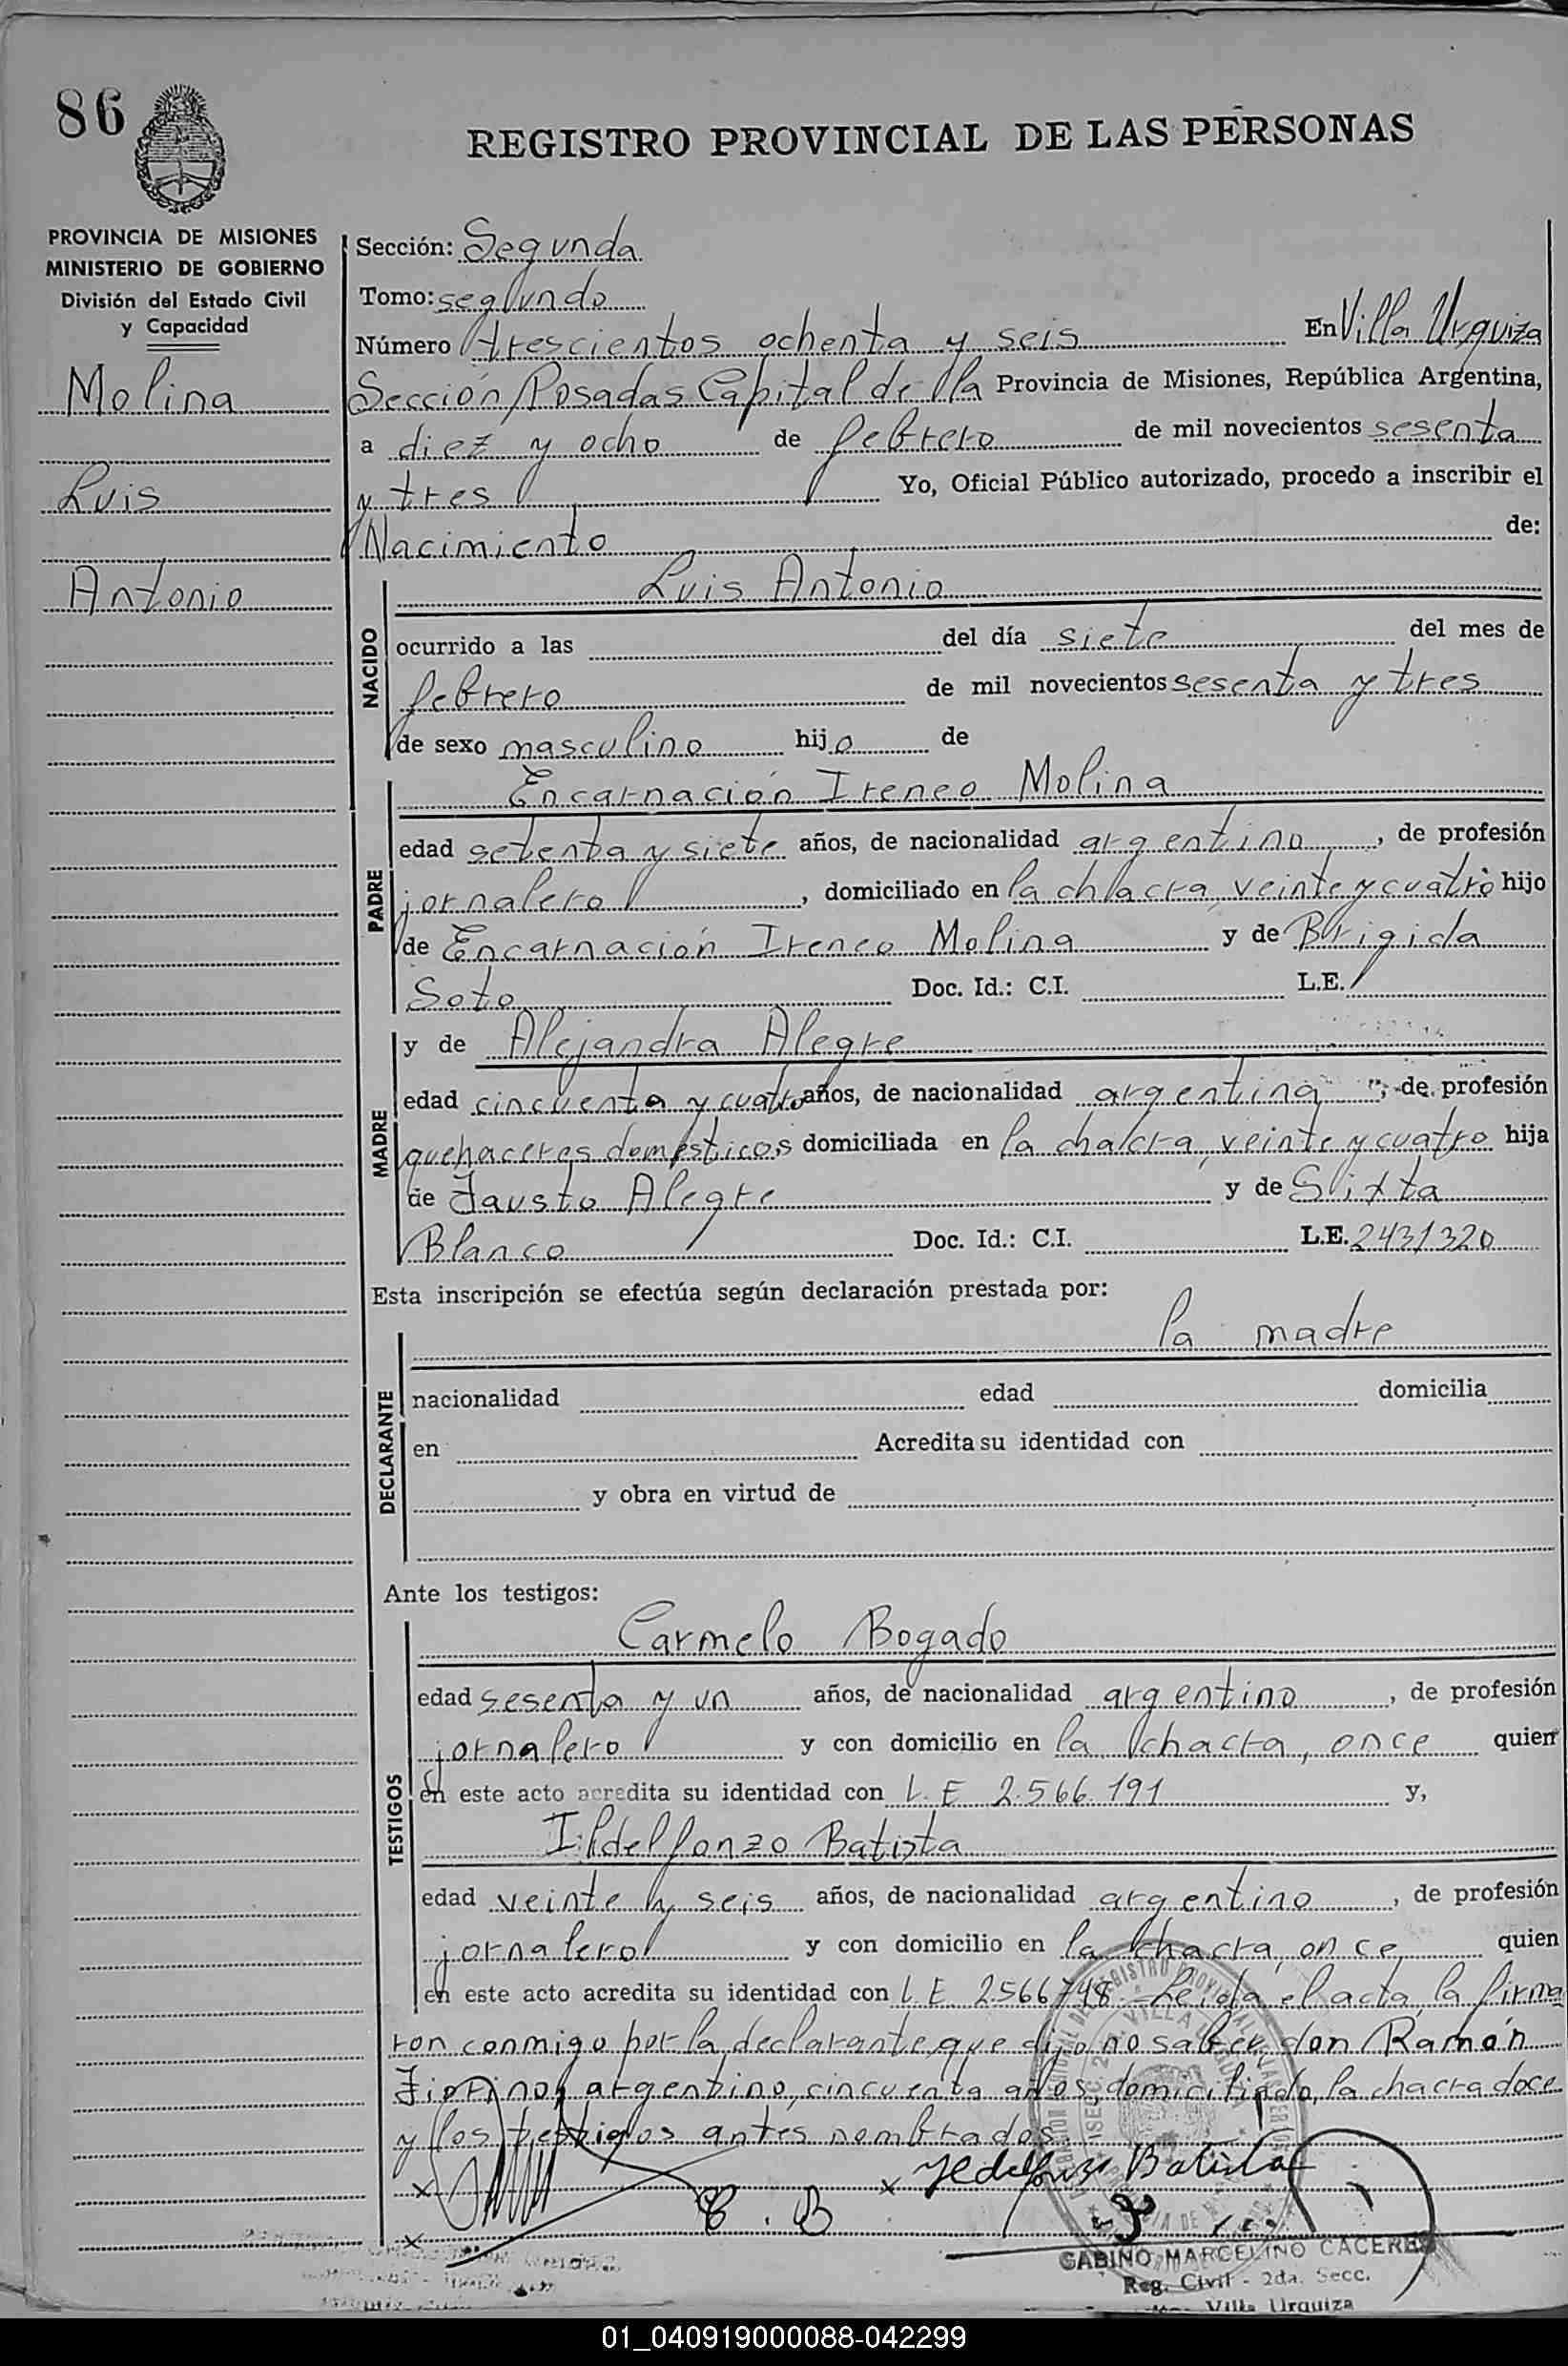 86
REGISTRO PROVINCIAL DE LAS PERSONAS
PROVINCIA DE MISIONES
MINISTERIO DE GOBIERNO
División del Estado Civil
y Capacidad
Molina
Luis
Antonio
Sección: Segunda
Tomo: segundo
Número trescientos ochenta y seis En Villa Urquiza
Sección Posadas Capital de la Provincia de Misiones, República Argentina,
a diez y ocho de febrero de mil novecientos sesenta
y tres Yo, Oficial Público autorizado, procedo a inscribir el
Nacimiento de:
NACIDO
Luis Antonio
ocurrido a las del día siete del mes de
febrero de mil novecientos sesenta y tres
de sexo masculino hijo de
PADRE
Encarnación Ireneo Molina
edad setenta y siete años, de nacionalidad argentino, de profesión
jornalero, domiciliado en la chacra, veinte y cuatro hijo
de Encarnación Ireneo Molina y de Brigida
Soto Doc. Id.: C.I. L.E.
MADRE
y de Alejandra Alegre
edad cincuenta y cuatro años, de nacionalidad argentina, de profesión
quehaceres domésticos domiciliada en la chacra, veinte y cuatro hija
de Fausto Alegre y de Sixta
Blanco Doc. Id.: C.I. L.E. 2431320
Esta inscripción se efectúa según declaración prestada por:
la madre
DECLARANTE
nacionalidad edad domicilia
en Acredita su identidad con
y obra en virtud de
Ante los testigos:
TESTIGOS
Carmelo Bogado
edad sesenta y un años, de nacionalidad argentino, de profesión
jornalero y con domicilio en la chacra, once quien
en este acto acredita su identidad con L.E 2.566.191 y,
Ildelfonzo Batista
edad veinte y seis años, de nacionalidad argentino, de profesión
jornalero y con domicilio en la chacra, once, quien
en este acto acredita su identidad con L.E. 2566748 - Leida el acta, la firma
ron conmigo por la declarante que dijo no saber, don Ramón
Fiorino, argentino, cincuenta años, domiciliado, la chacra doce
y los testigos antes nombrados
x x Yldelfonso Batista
C. B
x
GABINO MARCELINO CACERES
Reg. Civil - 2da. Secc.
Villa Urquiza
01_040919000088-042299